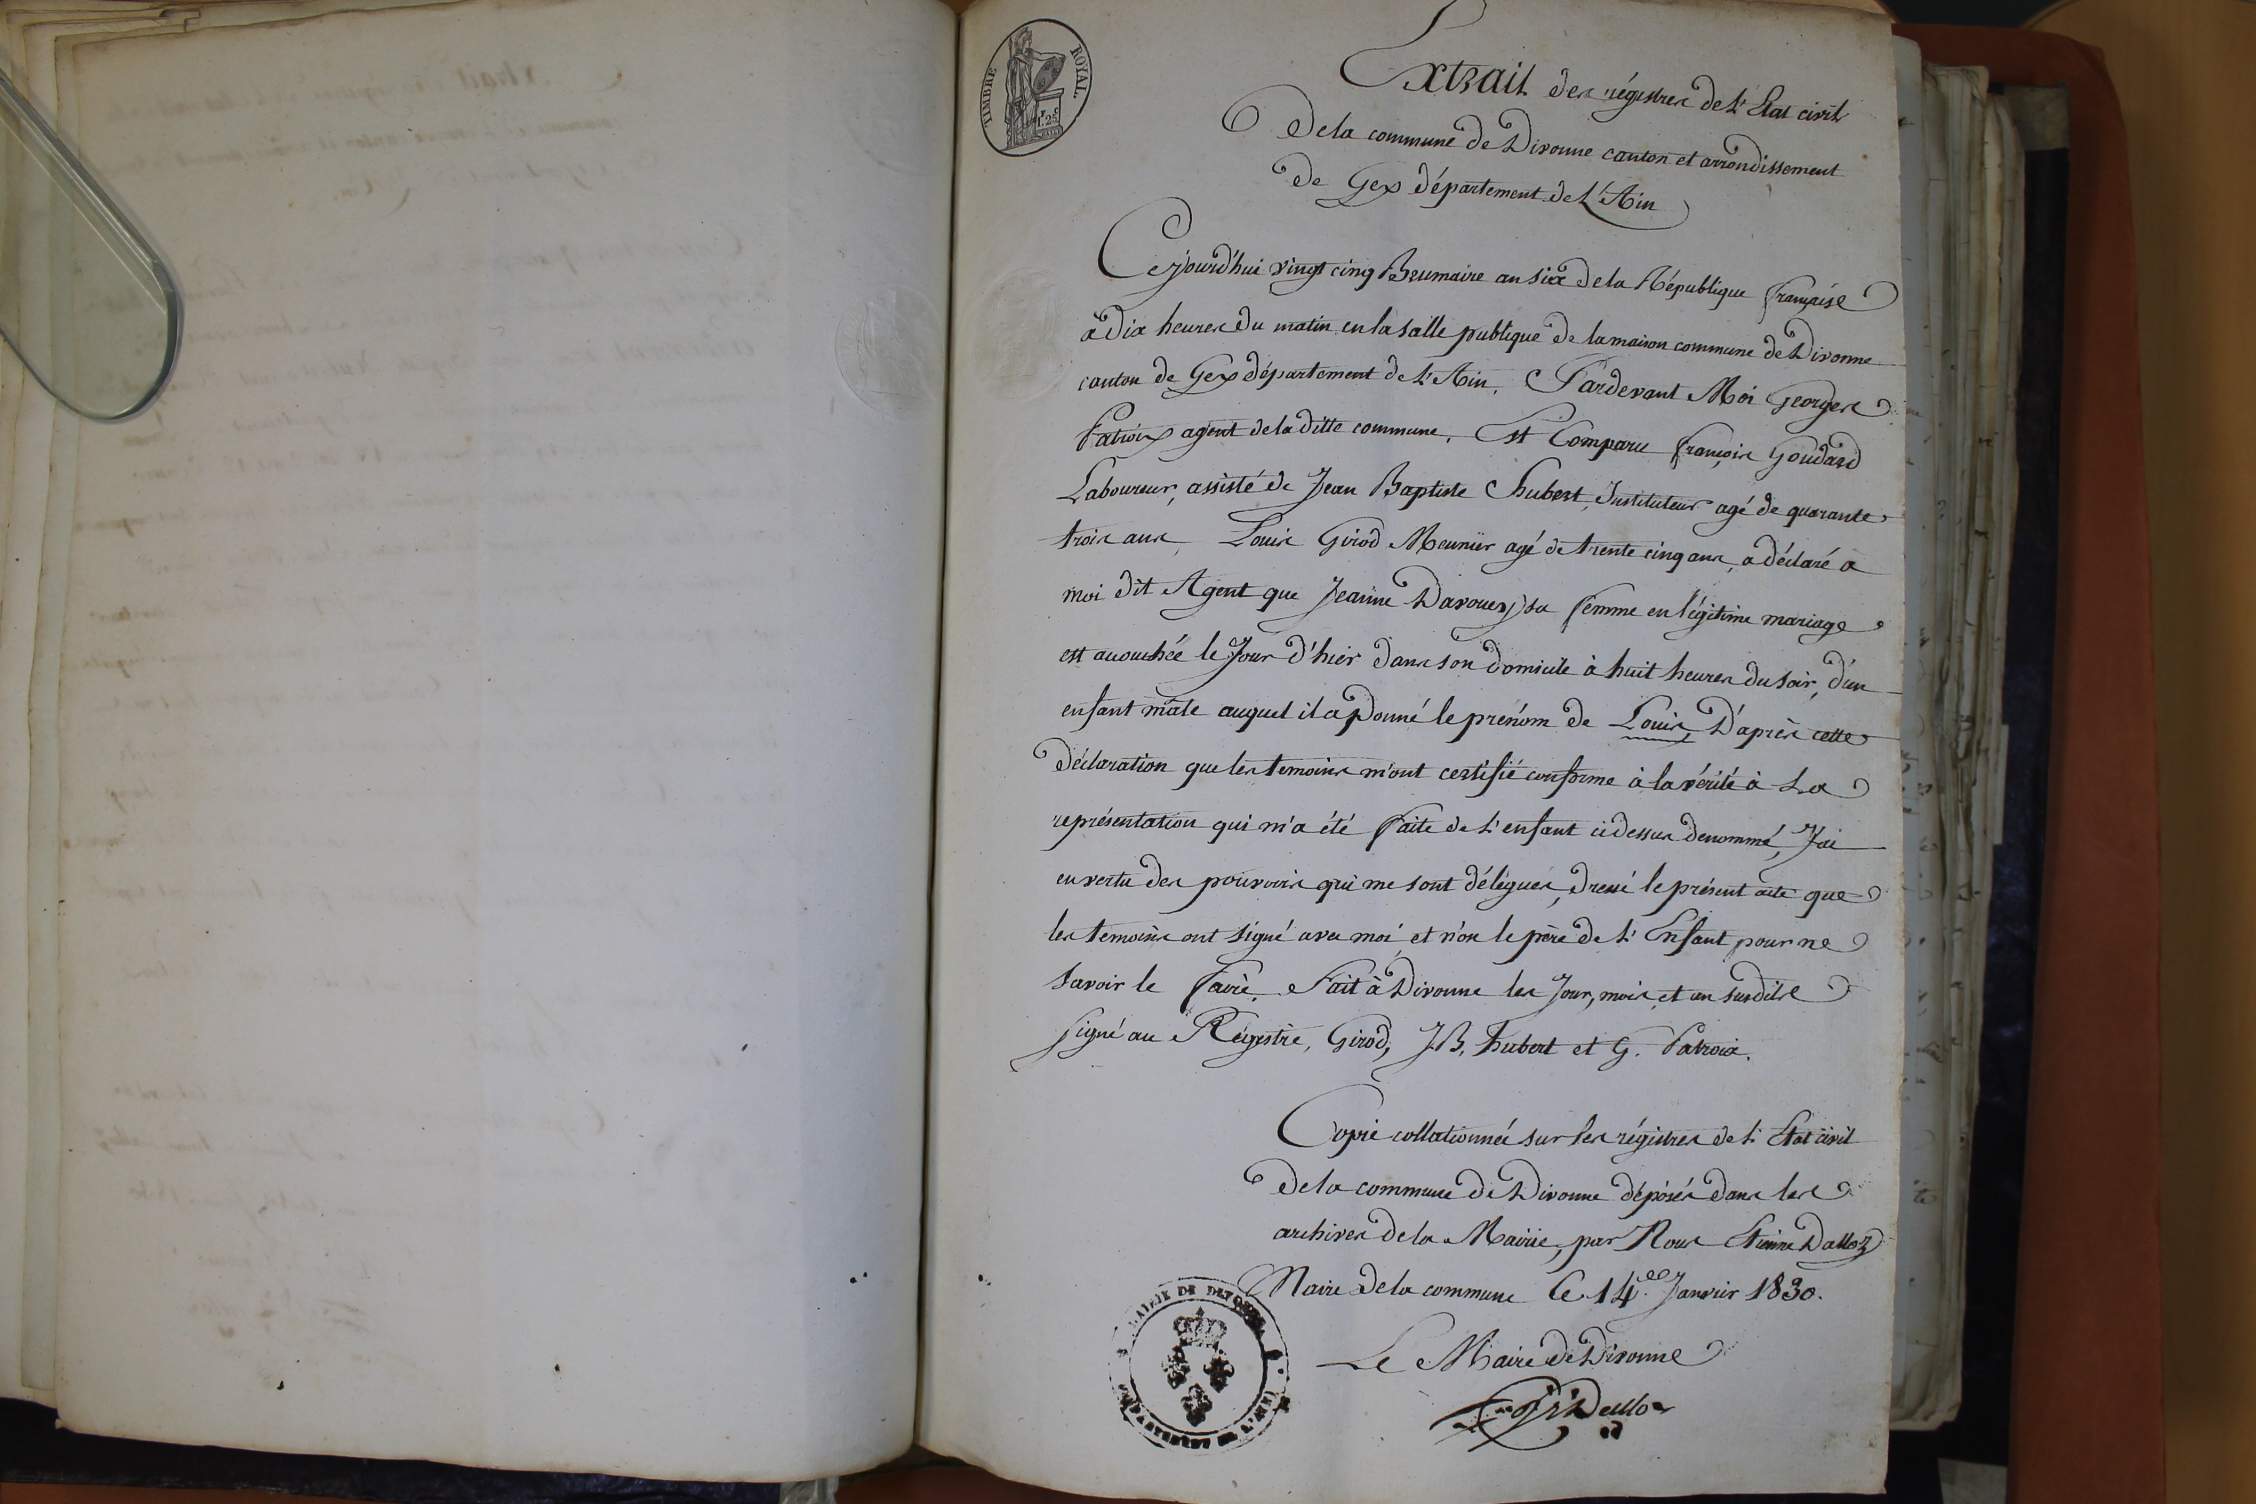 TIMBRE ROYAL
1f. 25c
Extrait des régistres de L'Etat civil
De la commune de Divonne canton et arrondissement
de Gex département de L'Ain
Cejourd'hui vingt cinq Brumaire an six de la République française
à dix heures du matin en la salle publique de la maison commune de Divonne
canton de Gex département de L'Ain, Pardevant Moi Georges
Patroix agent de la ditte commune. Est Comparu françois Goudard
Laboureur, assisté de Jean Baptiste hubert, Instituteur agé de quarante
trois ans, Louis Girod Meunier agé de trente cinq ans, a déclaré a
moi dit Agent que Jeanne Davouex sa femme en légitime mariage
est acouchée le Jour d'hier dans son domicile à huit heures du soir, d'un
enfant mâle auquel il a Donné le prénom de Louis, D'après cette
déclaration que les temoins m'ont certifié conforme à la vérité à La
représentation qui m'a été faite de L'enfant ci dessus denommé, J'ai
en vertu des pouvoirs qui me sont délégués, dressé le présent acte que
les temoins ont signé avec moi et non le père de L'Enfant pour ne
savoir le faire. Fait à Divonne les Jour, mois, et an susdits
signé au Régistre, Girod, J.B. hubert et G. Patroix.
Copie collationnée sur les régistres de L'Etat civil
De la commune de Divonne déposés dans les
archives de la Mairie, par Nous Etienne Dalloz
Maire de la commune Ce 14. Janvier 1830.
Le Maire de Divonne
Dalloz
MAIRIE DE DIVONNE
DEPARTEMENT DE L'AIN